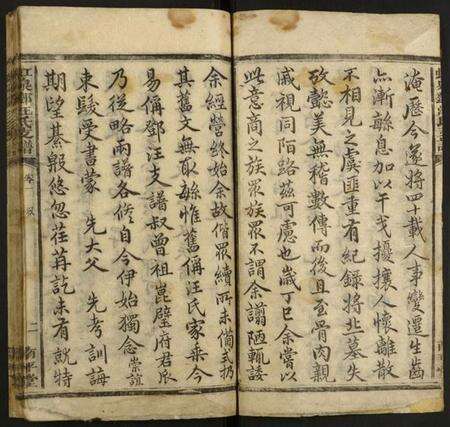 淹歷今遂將四十載人事變遷生齒
無漸緜息加以干戈擾攘人懷離散
不相見之虞匪重有紀錄將北墓失
攷懿美無稽數傳而後且至骨肉親
戚視同陌路茲可慮也歲丁巳余嘗以
此意商之族眾族眾不謂余謭陋輒諉
余經營終始余故偕眾續所未備式扔
其舊文無敢緜惟舊偁汪氏家乗今
易偁鄧汪支譜叔曾祖崑璧府君眾
乃從略兩譜各修自今伊始獨念崇誼
束髮受書蒙 先大父 先考訓誨
期望綦殷悠忽荏苒訖未有就特
汪氏支譜
卷首
二